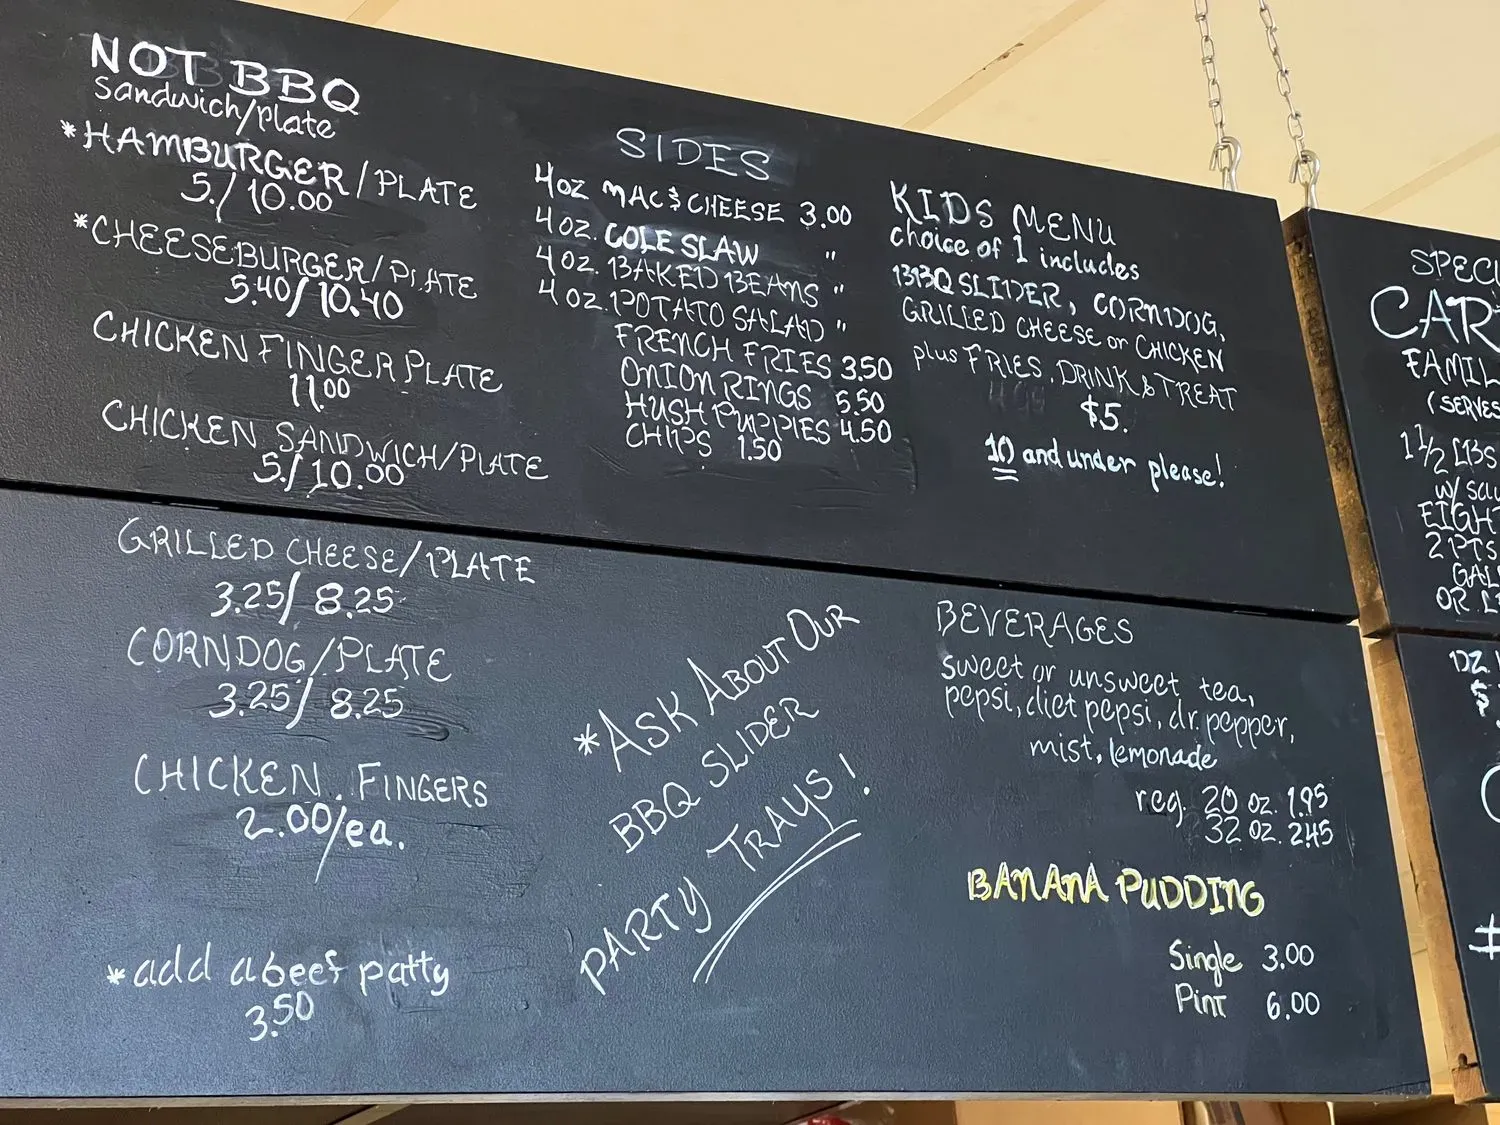 NOT BBQ
sandwich/plate
*HAMBURGER/PLATE
5./10.00
*CHEESEBURGER/PLATE
5.40/10.40
CHICKEN FINGER PLATE
11.00
CHICKEN SANDWICH/PLATE
5./10.00
GRILLED CHEESE/PLATE
3.25/8.25
CORNDOG/PLATE
3.25/8.25
CHICKEN FINGERS
2.00/ea.
*add a beef patty
3.50
SIDES
4oz MAC & CHEESE 3.00
4oz. COLE SLAW "
4oz. BAKED BEANS "
4oz. POTATO SALAD "
FRENCH FRIES 3.50
ONION RINGS 5.50
HUSH PUPPIES 4.50
CHIPS 1.50
*ASK ABOUT OUR
BBQ SLIDER
PARTY TRAYS!
KIDS MENU
choice of 1 includes
BBQ SLIDER, CORNDOG,
GRILLED CHEESE or CHICKEN
plus FRIES, DRINK & TREAT
$5.
10 and under please!
BEVERAGES
sweet or unsweet tea,
pepsi, diet pepsi, dr. pepper,
mist, lemonade
reg. 20 oz. 1.95
32 oz. 2.45
BANANA PUDDING
Single 3.00
Pint 6.00
SPECI
CAR
FAMIL
(SERVES
1 1/2 LBS
w/ sau
EIGHT
2 PTS
GAL
OR
DZ.
$
#